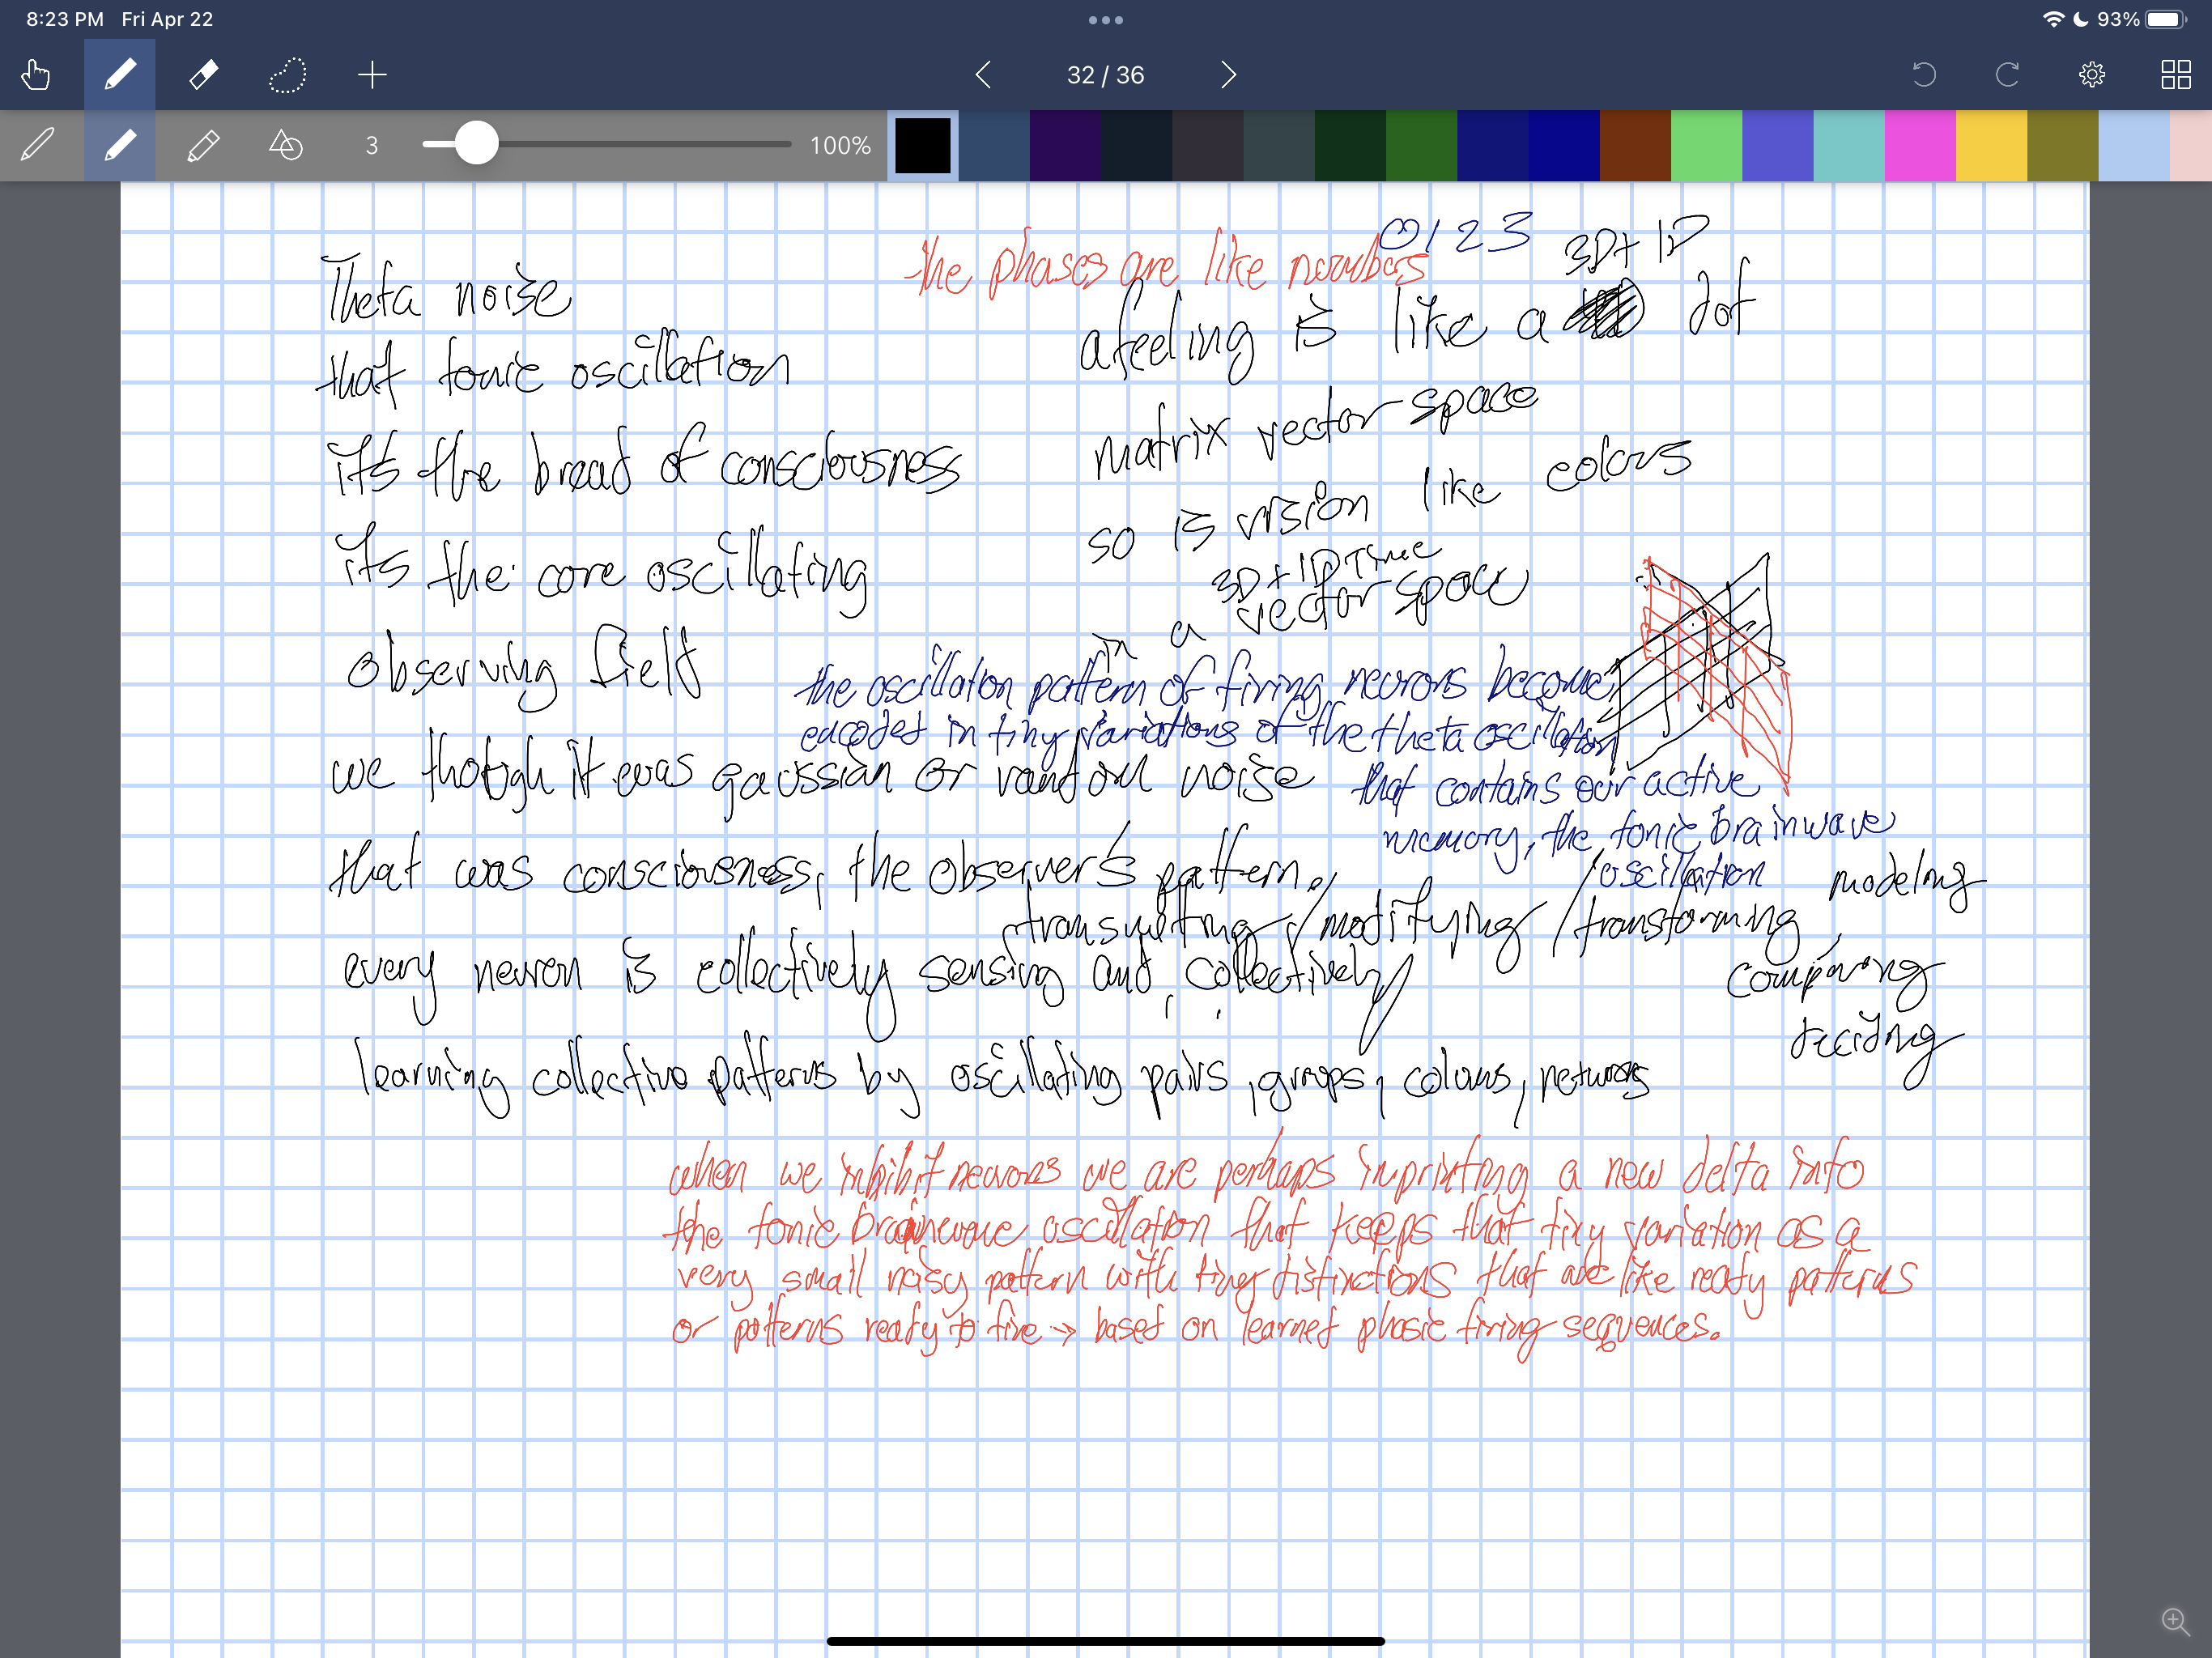 8:23 PM Fri Apr 22
93%
32 / 36
3
100%
Theta noise
that tonic oscillation
its the bread of consciousness
its the core oscillating
observing field
we though it was gaussian or random noise
that was consciousness, the observer's pattern.
every neuron is collectively sensing and, collectively
transmitting / modifying / transforming modeling
comparing
deciding
learning collective patterns by oscillating pairs, groups, columns, networks
the phases are like numbers 0 1 2 3
3D + 1D
a feeling is like a dot
matrix vector space
so is vision like colors
3D + 1D Time
in a vector space
the oscillation pattern of firing neurons become
encoded in tiny variations of the theta oscillation
that contains our active
memory, the tonic brainwave
oscillation
when we inhibit neurons we are perhaps imprinting a new delta into
the tonic brainwave oscillation that keeps that tiny variation as a
very small noisy pattern with tiny distinctions that are like ready patterns
or patterns ready to fire → based on learned phasic firing sequences.